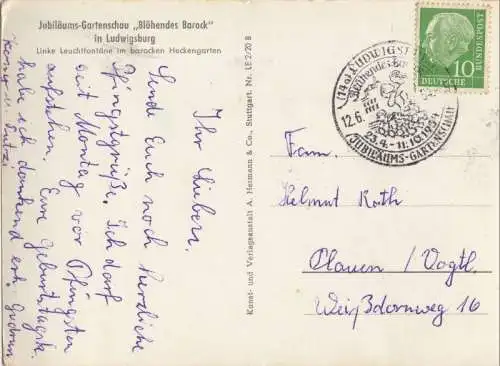 Jubiläums-Gartenschau „Blühendes Barock"
in Ludwigsburg
Linke Leuchtfontäne im barocken Heckengarten
Ihr Lieben.
Sende Euch noch herzliche
Pfingstgrüße. Ich darf
seit Montag vor Pfingsten
aufstehen. Eure Geburtstagsk.
habe ich dankend erh. Gudrun
Kunst- und Verlagsanstalt A. Hermann & Co., Stuttgart. Nr. LE 2/20 B
(14a) LUDWIGS
12.6.
23.4.-11.10.1954
JUBILÄUMS-GARTENSCHAU
DEUTSCHE
BUNDESPOST
10
Fam.
Helmut Rath
Plauen / Vogtl.
Weißdornweg 16